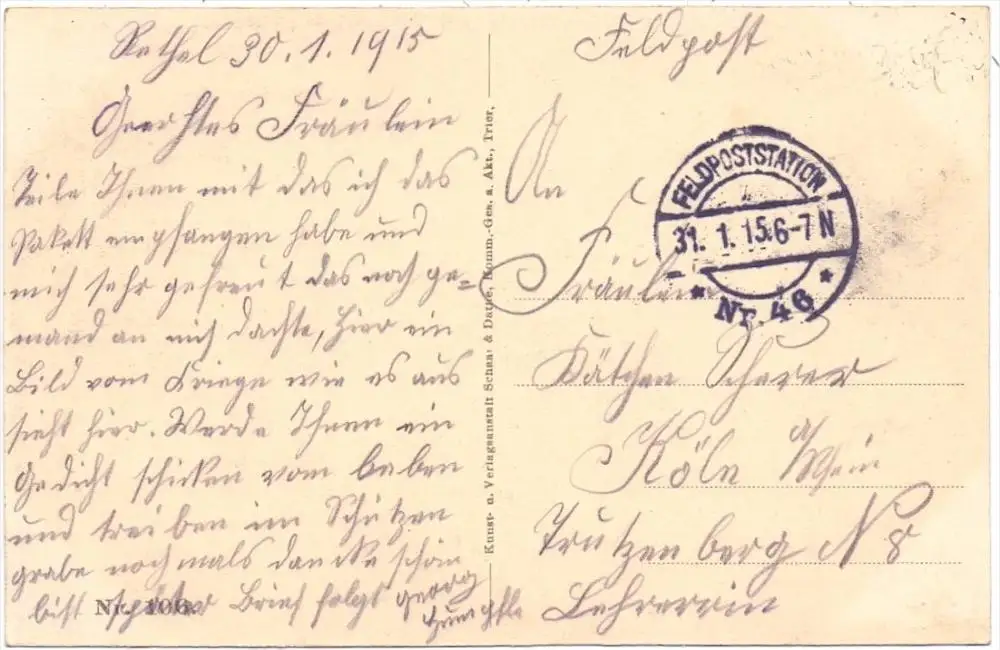 Rethel 30.1.1915
Geerhtes Fräulein
Teile Ihnen mit das ich das
Pakett empfangen habe und
mich sehr gefreut das noch ge=
mand an mich dachte, hier ein
Bild vom Kriege wie es aus
sieht hier. Werde Ihnen ein
Gedicht schicken vom leben
und treiben im Schützen
grabe nochmals dancke schön
bist später Brief folgt Georg
Nr. 106.
Kunst- u. Verlagsanstalt Schaar & Dathe, Komm.-Ges. a. Akt., Trier.
Feldpost
An
Fräulein
Kätchen Scherer
Köln a/Rhein
Trutzenberg N 8
Lehrerrin
FELDPOSTSTATION
31. 1. 15. 6-7 N
* Nr. 46 *